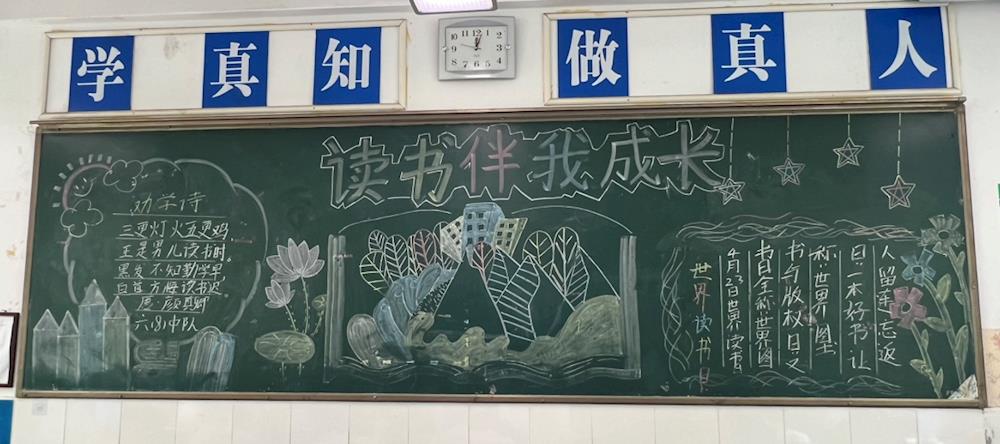 学真知 做真人
读书伴我成长
劝学诗
三更灯火五更鸡,
正是男儿读书时。
黑发不知勤学早,
白首方悔读书迟
唐·颜真卿
六(8)中队
世界读书日
4月23日世界读书
书日全称世界图
书与版权日又
称:世界图
日:一本好书让
人留莲忘返